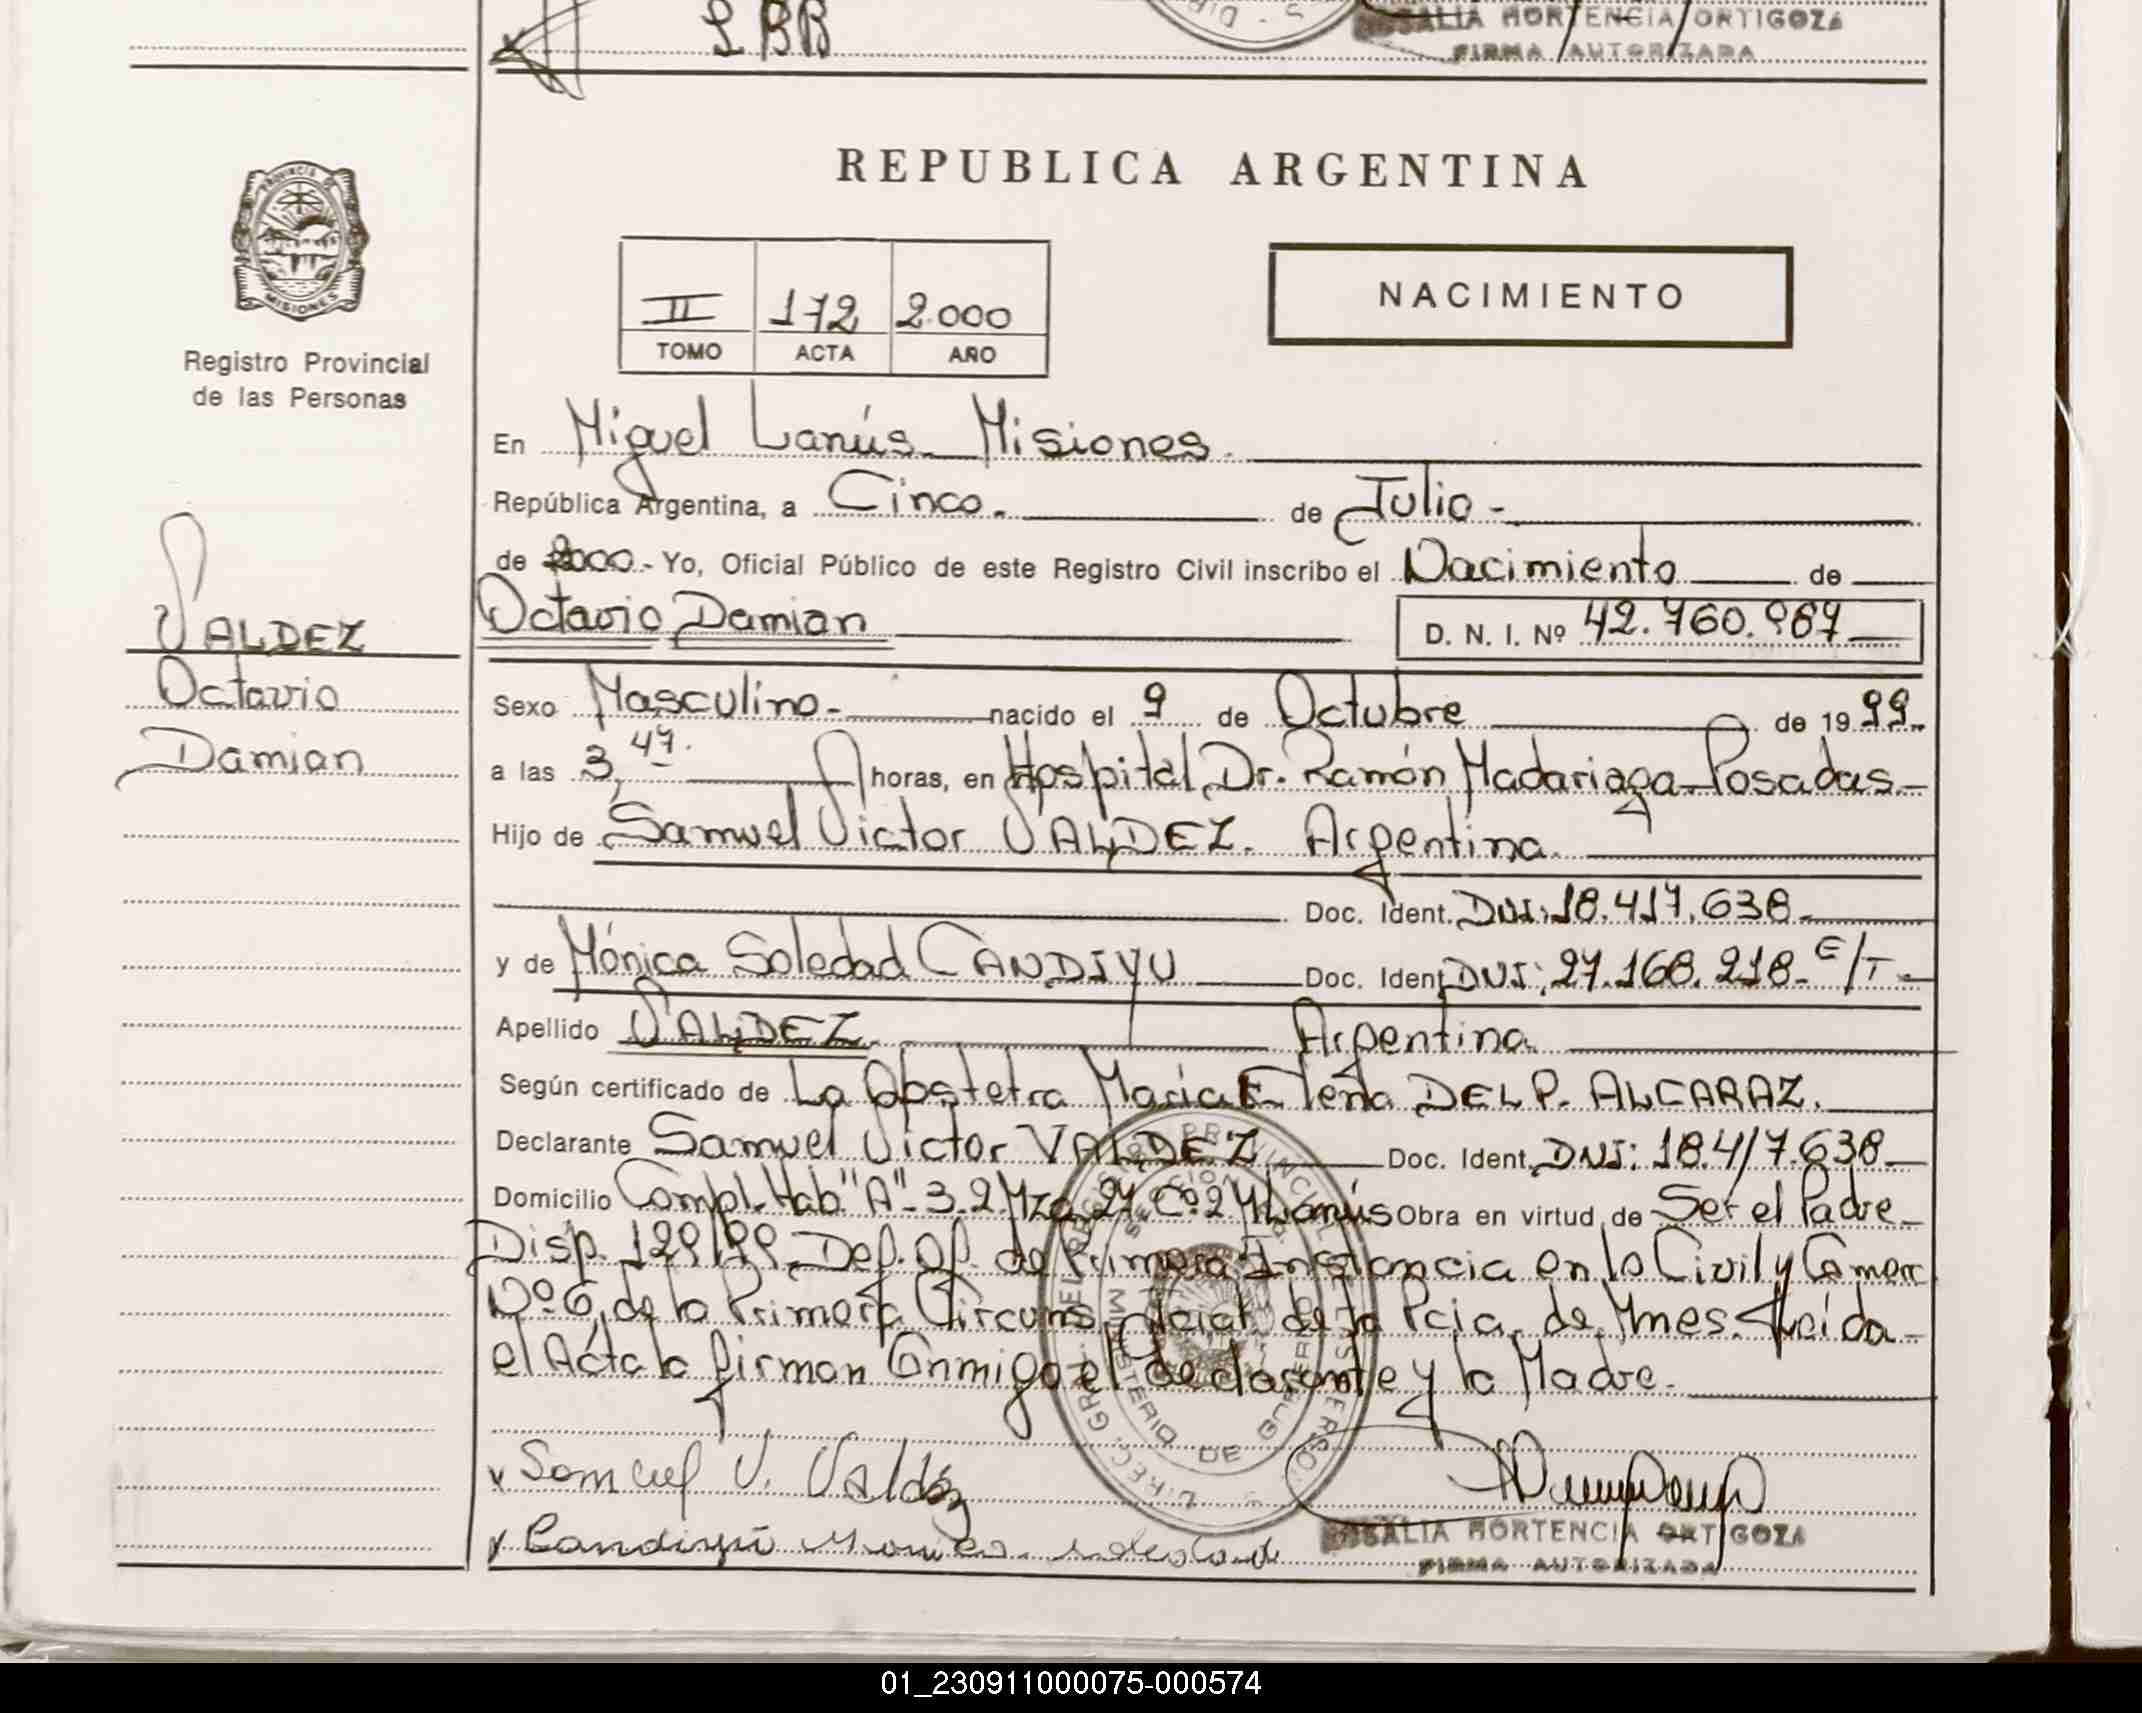 LBB
ROSALIA HORTENCIA ORTIGOZA
FIRMA AUTORIZADA
PROVINCIA DE
MISIONES
Registro Provincial
de las Personas
VALDEZ
Octavio
Damian
REPUBLICA ARGENTINA
II 172 2.000
TOMO ACTA AÑO
NACIMIENTO
En Miguel Lanús - Misiones.
República Argentina, a Cinco. de Julio -
de 2000 - Yo, Oficial Público de este Registro Civil inscribo el Nacimiento de
Octavio Damian D. N. I. Nº 42.760.967
Sexo Masculino - nacido el 9 de Octubre de 1999.
a las 3,47. horas, en Hospital Dr. Ramón Madariaga - Posadas -
Hijo de Samuel Victor VALDEZ. Argentina.
Doc. Ident. DNI: 18.417.638 -
y de Mónica Soledad CANDIYU Doc. Ident. DNI: 27.168.218 - E/T -
Apellido VALDEZ. Argentina.
Según certificado de La Obstetra María Elena DEL P. ALCARAZ.
Declarante Samuel Victor VALDEZ Doc. Ident. DNI: 18.417.638
Domicilio Compl. Hab "A" - 3.2 Mza 27 Cº 2 M Lanús Obra en virtud de Ser el Padre -
Disp. 129/99. Def. Of. de Primera Instancia en lo Civil y Comerc
Nº 6, de la Primera Circuns. Jcial. de la Pcia. de Mnes. Leída -
el Acta la firman Conmigo el declarante y la Madre.
Samuel V. Valdéz
Candiyú Monica Soledad
ROSALIA HORTENCIA ORTIGOZA
FIRMA AUTORIZADA
MINISTERIO DE GOBIERNO
01_230911000075-000574